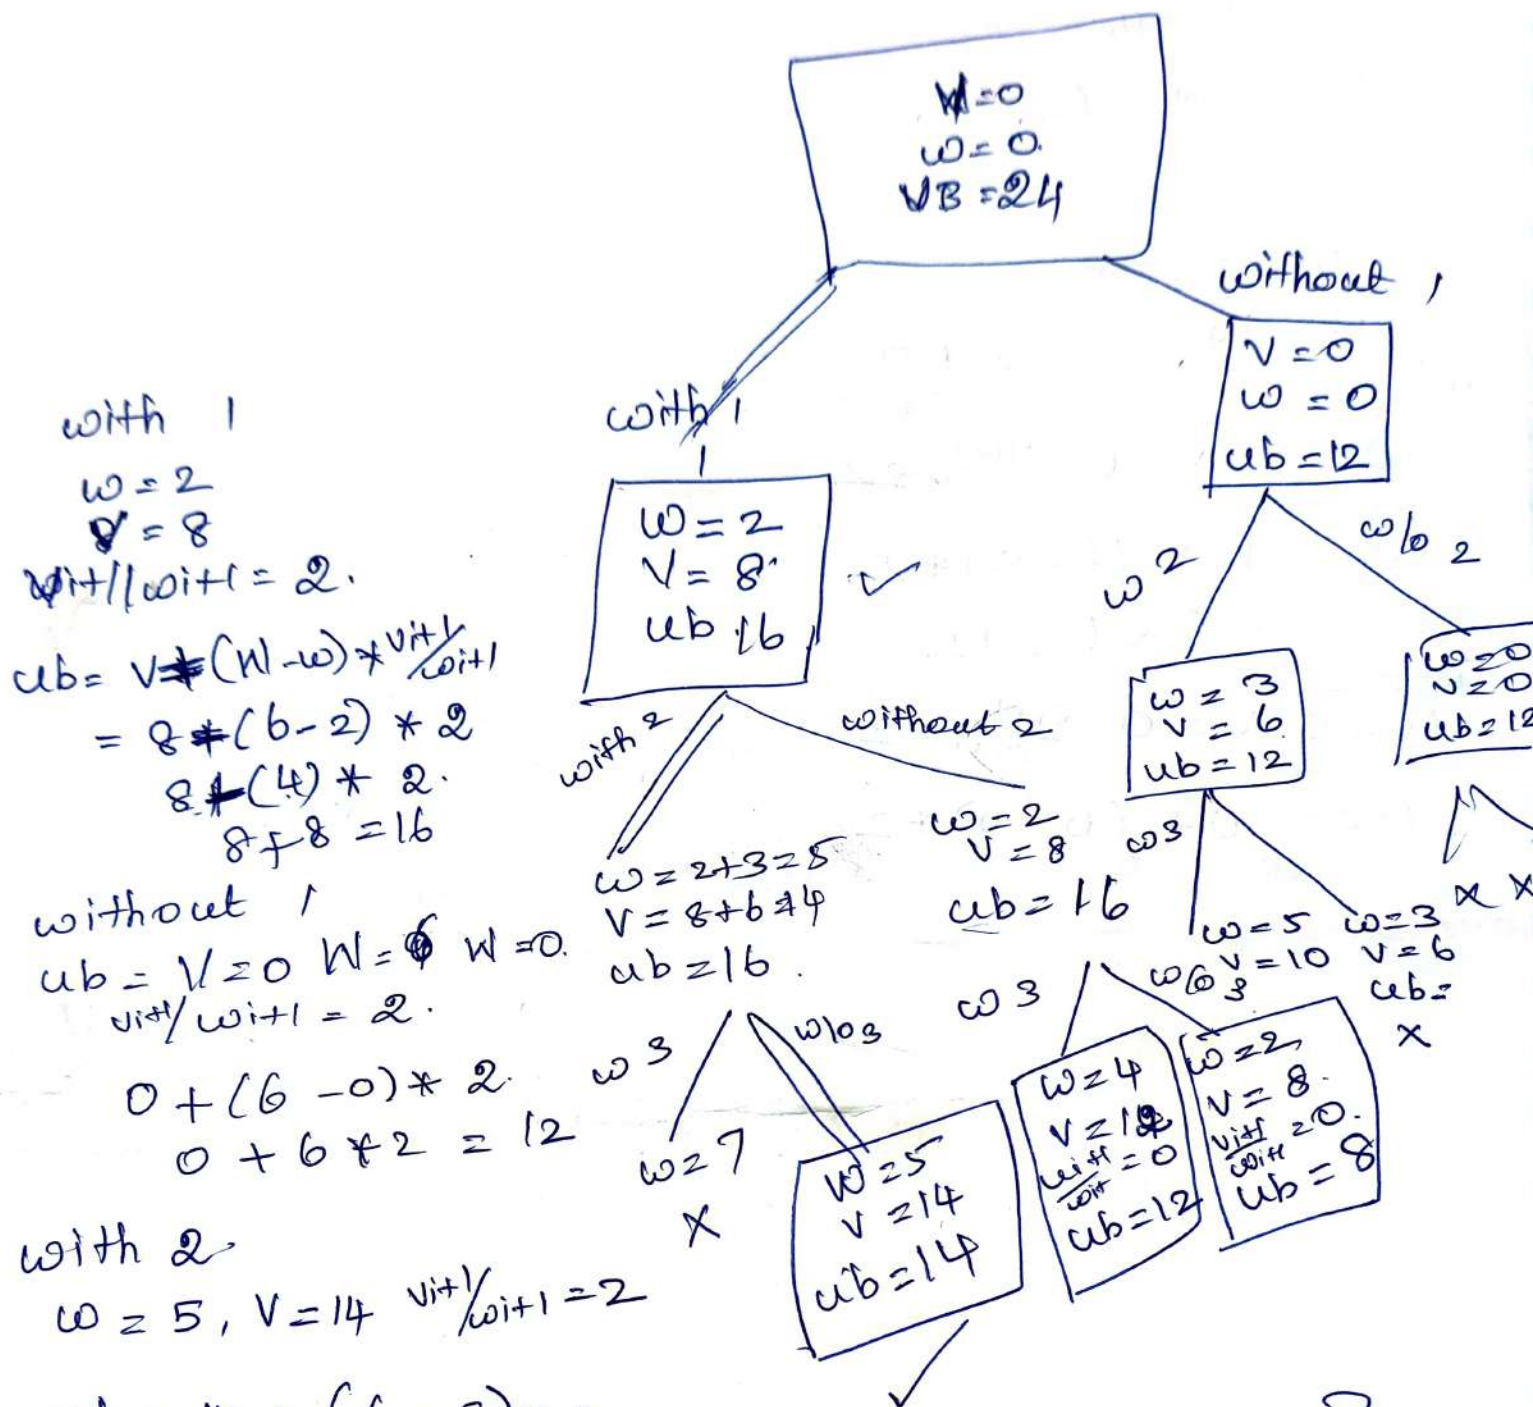 W=0
w=0.
VB=24
without 1
V=0
w=0
ub=12
with 1
w=2
V=8
ub 16
w 2
w/o 2
w=3
V=6
ub=12
w=0
v=0
ub=12
with 2
without 2
w=2+3=5
V=8+6=14
ub=16.
w=2
V=8
ub=16
w3
w=5
v=10
w=3
v=6
ub=
x
x x
w 3
w/o3
w 3
w/o 3
w=7
x
w=5
v=14
ub=14
w=4
V=12
vi+1/wi+1=0
ub=12
w=2,
v=8.
vi+1/wi+1=0.
ub=8
with 1
w=2
V=8
vi+1/wi+1=2.
ub= V+(W-w)*vi+1/wi+1
= 8+(6-2)*2
8+(4)*2.
8+8=16
without 1
ub= V=0 W=6 W=0.
vi+1/wi+1=2.
0+(6-0)*2.
0+6*2=12
with 2.
w=5, V=14 vi+1/wi+1=2